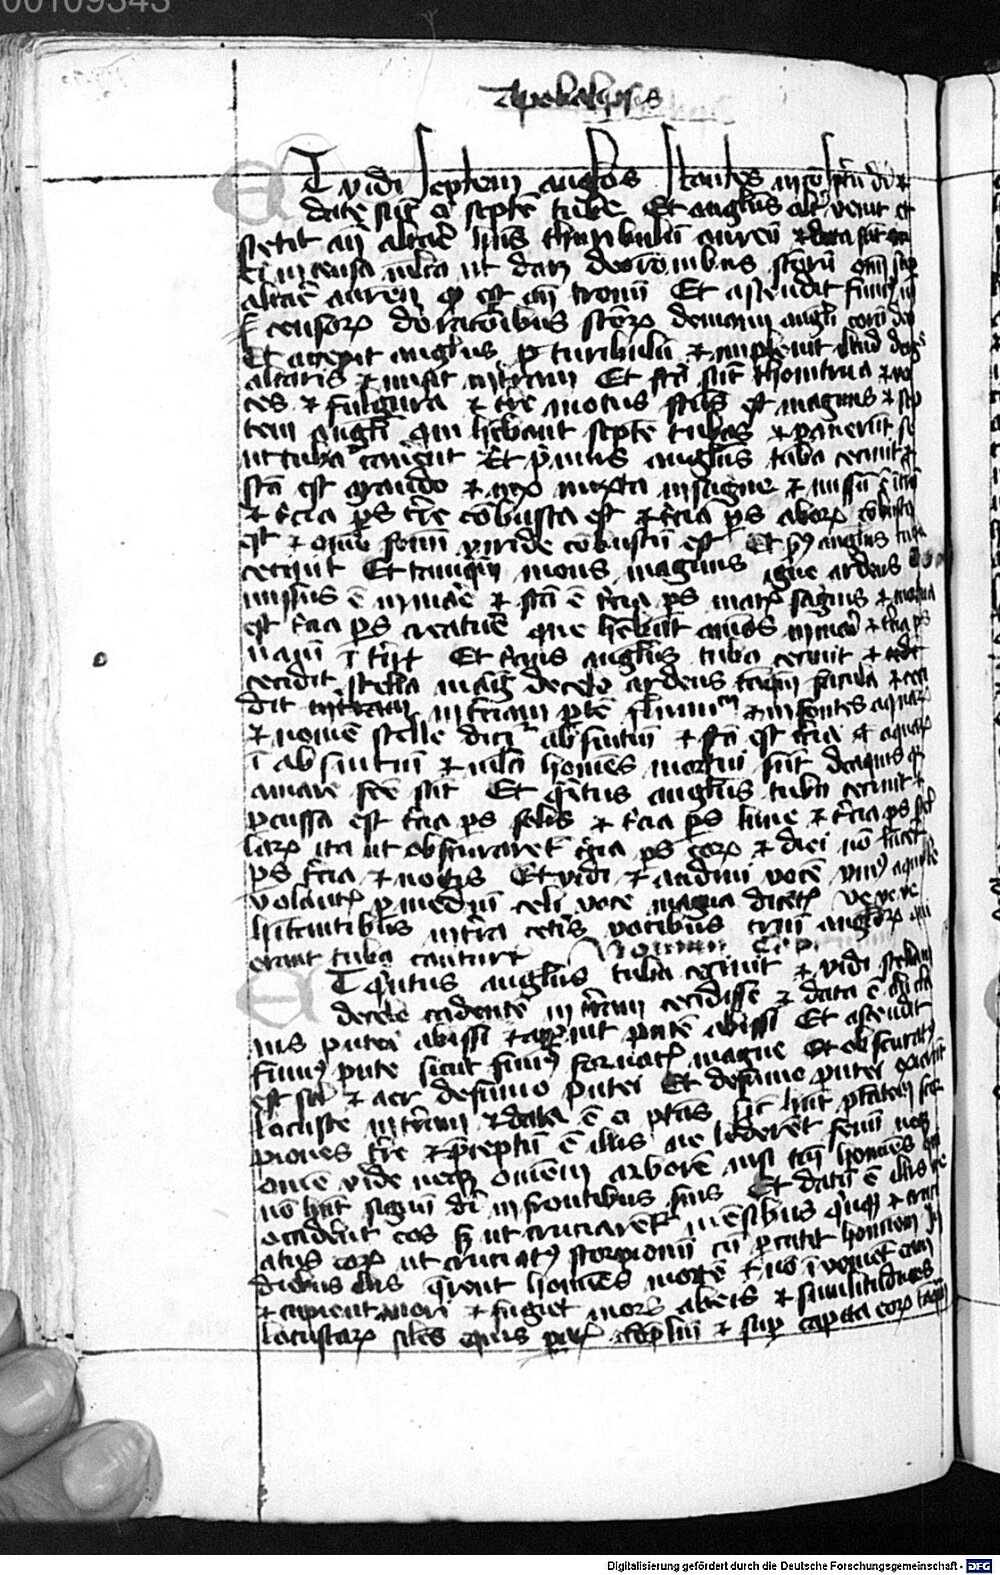 00109343
Apokalipsis
Et vidi septem anglos stantes in conspectu dei et
date sunt ei septe tube Et anglus alter venit et
stetit an altare hns thuribulu aureu et data sunt
ei incensa multa ut daret de oronibus storu oim sup
altare aureu qd est an tronu Et ascendit fumus in
censorum de oraconibus storum de manu angli coram deo
Et accepit anglus turibulu et impleuit illud de igne
altaris et misit in terram Et fca sunt thonitrua et vo
ces et fulgura et tre motus fcus est magnus et sep
tem angli qui hebant septe tubas pparauerunt se
ut tuba canerent Et primus anglus tuba cecinit et
fca est grando et ignis mixta in sagine et missu e in tra
et tercia ps tre combusta est et tercia ps arborum combusta
est et omne fenu viride combustu est Et scds anglus tuba
cecinit Et tamqm mons magnus igne ardens
missus e in mare et fca e tercia ps maris sagwis et mortua
est tercia ps creature que hebant aias in mari et tercia ps
nauiu interiit Et tercius anglus tuba cecinit et
cecidit stella magna de celo ardens tamqm facula et ceci
dit in terciam parte fluminum et in fontes aquarum
et nomen stelle dicitur absintiu et fca est tercia ps aquarum
in absintiu et multi homines mortui sunt de aquis quia
amare fce sunt Et quartus anglus tuba cecinit et
pcussa est tercia ps solis et tercia ps lune et tercia ps stel
larum ita ut obscuraret tercia ps eorum et diei no luceret
ps tercia et noctis Et vidi et audiui voce unius aquile
volantis p mediu celi voce magna dicentis ve ve ve
hitantibus in terra ceteris vocibus triu anglorum qui
erant tuba canituri Nonum Cap.
Et quintus anglus tuba cecinit et vidi stellam
de celo cadente in terram cecidisse et data e ei cla
uis putei abissi et aperuit pute abissi Et ascendit
fumus putei sicut fumus fornacis magne Et obscuratus
est sol et aer de fumo putei Et de fumo putei exierunt
locuste in terram et data e ei ptas sic hnt ptatem scor
piones tre et preceptu e illis ne lederent fenu neq
omne viride neq omnem arbore nisi tm homines qui
no hnt signu dei in frontibus suis Et datu e illis ne
occiderent eos sed ut cruciarent mensibus quinq et cruci
atus eorum ut cruciatus scorpionu cu percutit hominem In
diebus illis querent homines morte et no inuenient eam
et cupient mori et fugiet mors ab eis et similitudines
locustarum siles equis paratis ad preliu et sup capita eorum tamqm
Digitalisierung gefördert durch die Deutsche Forschungsgemeinschaft - DFG